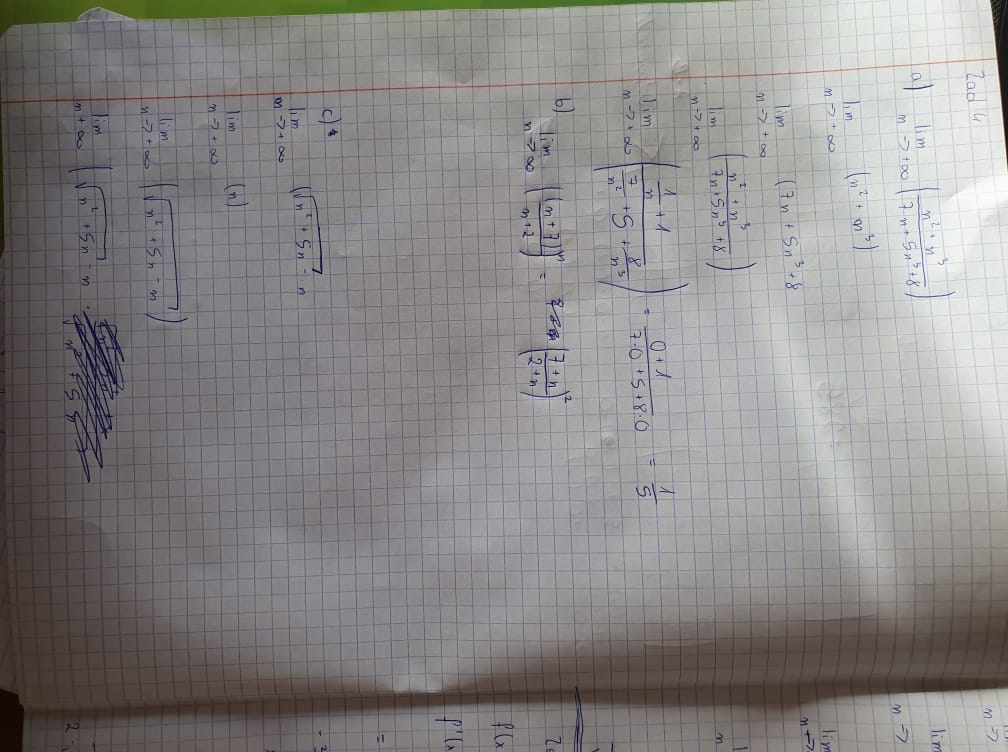 Zad 4
a) lim n->+∞ ( (n² + n³) / (7n + 5n³ + 8) )
lim n->+∞ (n² + n³)
lim n->+∞ (7n + 5n³ + 8
lim n->+∞ ( (n² + n³) / (7n + 5n³ + 8) )
lim n->+∞ ( (1/n + 1) / (7/n² + 5 + 8/n³) ) = (0 + 1) / (7·0 + 5 + 8·0) = 1/5
b) lim n->∞ ( (n+7) / (n+2) )ⁿ = ( (7+n) / (2+n) )²
c)
lim n->+∞ (√(n² + 5n) - n
lim n->+∞ (n)
lim n->+∞ (√(n² + 5n - n))
lim n+∞ (√(n² + 5n) · n
lim
n ->
lim
n ->
n
f(x
f'(x
=
2